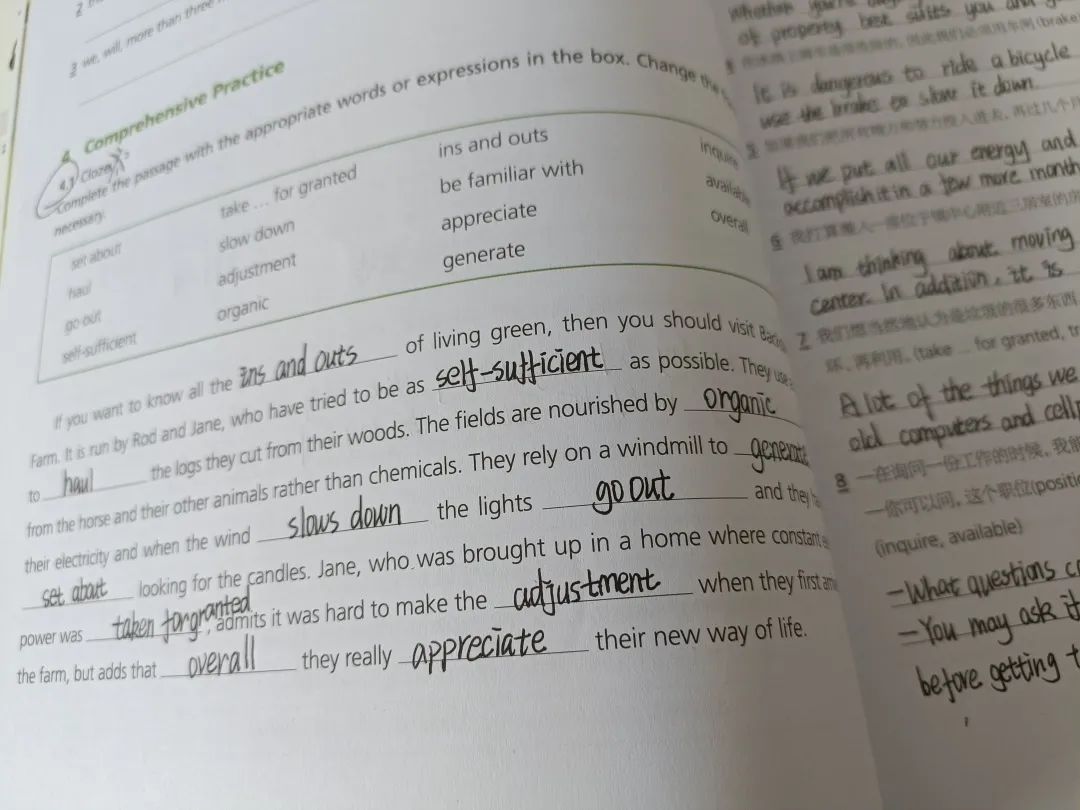 2
3 we, will, more than three
4 Comprehensive Practice
4.1 Cloze
Complete the passage with the appropriate words or expressions in the box. Change the
necessary.
set about take ... for granted ins and outs inquire
haul slow down be familiar with available
go out adjustment appreciate overall
self-sufficient organic generate
If you want to know all the ins and outs of living green, then you should visit
Farm. It is run by Rod and Jane, who have tried to be as self-sufficient as possible. They use
to haul the logs they cut from their woods. The fields are nourished by organic
from the horse and their other animals rather than chemicals. They rely on a windmill to generate
their electricity and when the wind slows down the lights go out and they
set about looking for the candles. Jane, who was brought up in a home where constant
power was taken for granted, admits it was hard to make the adjustment when they first
the farm, but adds that overall they really appreciate their new way of life.
whether you're
of property best suits you and
(brake
It is dangerous to ride a bicycle
use the brakes to slow it down.
5
If we put all our energy and
accomplish it in a few more month
6
I am thinking about moving
center. In addition, it is
7 我们想当然地认为是垃圾的很多东西
坏,再利用。(take ... for granted, tr
A lot of the things we
old computers and cell
8 —在询问一份工作的时候,我能
—你可以问,这个职位(positio
(inquire, available)
—What questions c
—You may ask if
before getting t